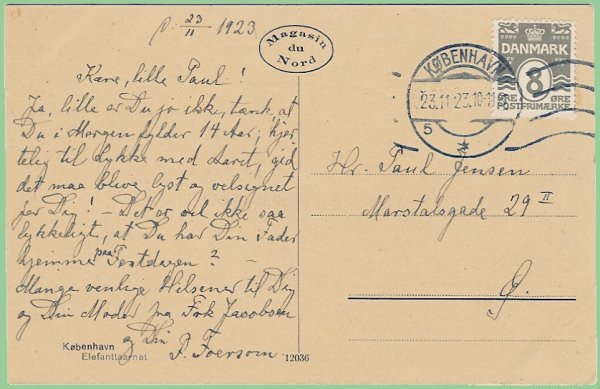 p. t. 23/11 1923.
Magasin
du
Nord
Kære, lille Paul!
Ja, lille er Du jo ikke, tænk at
Du i Morgen fylder 14 Aar, hjer
telig til Lykke med Aaret, gid
det maa blive lyst og velsignet
for Dig! – Det er vel ikke saa
lykkeligt, at Du har Din Fader
hjemme paa Festdagen? –
Mange venlige Hilsener til Dig
og Din Moder fra Frk Jacobsen
og Din
P. Foersom
København
Elefanttaarnet
12036
DANMARK
8
ØRE ØRE
POSTFRIMÆRKE
KØBENHAVN
23.11.23.10-11
5
Hr. Paul Jensen
Marstalsgade 29 II
Ø.